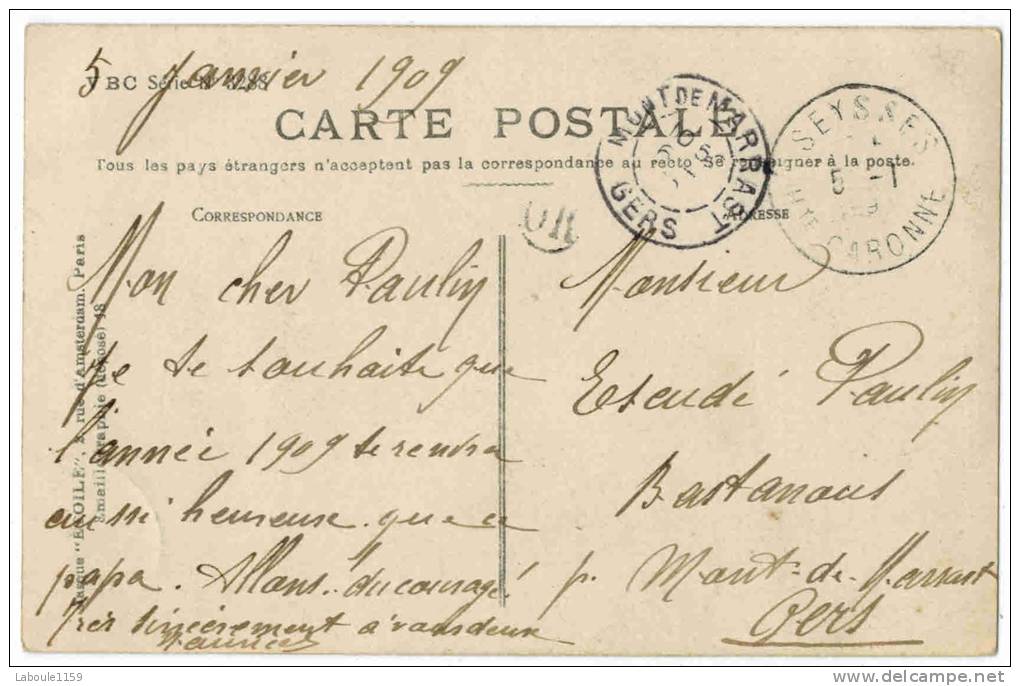 5 Janvier 1909
VBC Série No 3288
CARTE POSTALE
Tous les pays étrangers n'acceptent pas la correspondance au recto Se renseigner à la poste.
MONT DE MARRAST
GERS
SEYSSES
5 -1
HTE GARONNE
CORRESPONDANCE
ADRESSE
OR
Mon cher Paulin
Je te souhaite que
l'année 1909 te rendra
aussi heureuse que ce
papa. Allons! du courage!
Très sincèrement à vous deux
Maurice
Monsieur
Escudé Paulin
Bastanous
p. Mont-de-Marrast
Gers
Marque "ETOILE", rue d'Amsterdam. Paris
Emaillographie (déposé) 18
Laboule1159
delcampe.net